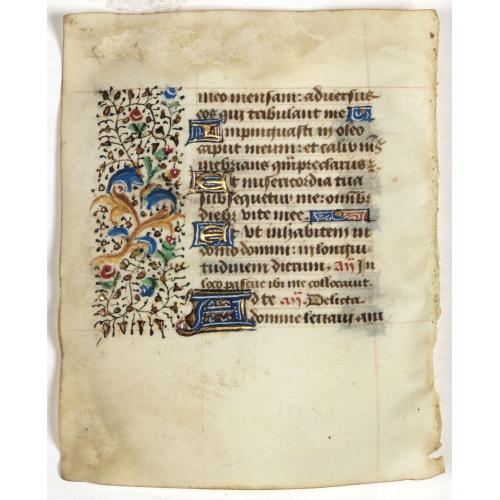 meo mensam: adversus
eos qui tribulant me
Impinguasti in oleo
caput meum: et calix me9
inebrians qm preclarus ē
Et misericordia tua
subsequetur me: omnibz
diebz vite mee
Et ut inhabitem in
domo domini: in longitu
tudinem dierum. añ In
loco pascue ibi me collocavit.
Ad te añ. Delicta
domine levavi ani